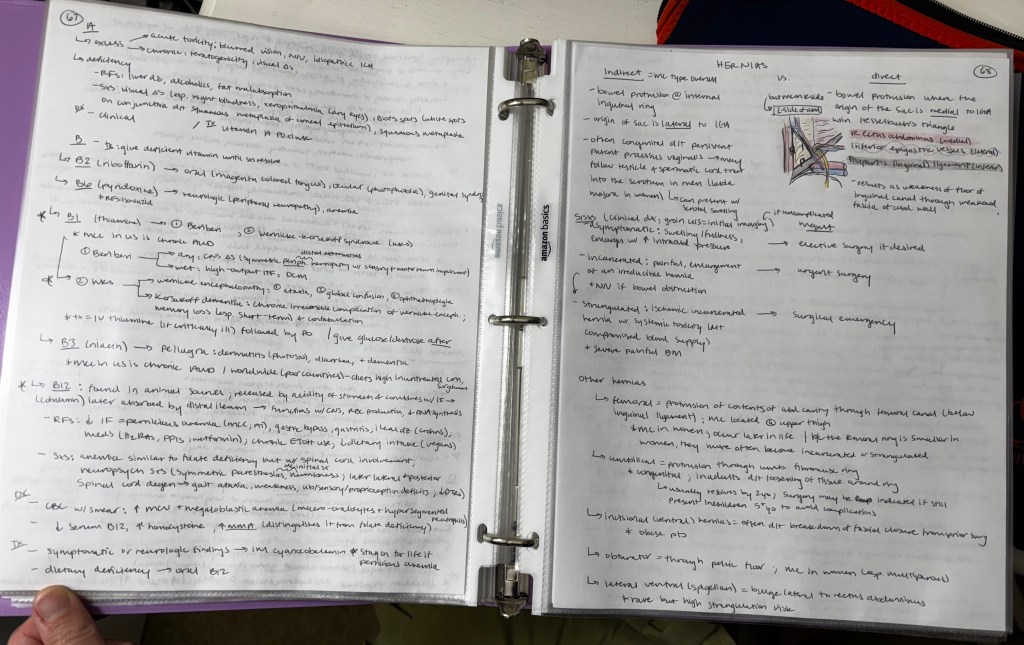 67
A
↳ excess → acute toxicity: blurred vision, N/V, idiopathic ICH
→ chronic: teratogenicity, visual Δs
↳ deficiency
- RFs: liver dz, alcoholics, fat malabsorption
- SXS: visual Δs (esp. night blindness, xerophthalmia (dry eyes), Bitot's spots (white spots
on conjunctiva d/t squamous metaplasia of corneal epithelium), squamous metaplasia
DX - clinical / Tx vitamin A PO
B - Tx: give deficient vitamin until sxs resolve
↳ B2 (riboflavin) → oral (magenta colored tongue), ocular (photophobia), genital
↳ B6 (pyridoxine) → neurologic (peripheral neuropathy), anemia
* RF isoniazid
* ↳ B1 (thiamine) → ① Beriberi, ② Wernicke-Korsakoff syndrome (WKS)
* MCC in US is chronic AUD
① Beriberi → dry: CNS Δs (symmetric periph neuropathy w/ sensory + motor impairment)
→ wet: high-output HF, DCM
* ↳ ② WKS → Wernicke encephalopathy: ① ataxia, ② global confusion, ③ ophthalmoplegia
→ Korsakoff dementia: chronic irreversible complication of wernicke enceph;
memory loss (esp. short-term) + confabulation
* Tx = IV thiamine (if critically ill) followed by PO / give glucose/dextrose after
↳ B3 (niacin) → pellagra: dermatitis (photosn), diarrhea, + dementia
* MCC in US is chronic AUD / worldwide (poor countries) - diets high in untreated corn,
sorghum
* ↳ B12: found in animal sources, released by acidity of stomach & combines w/ IF →
(cobalamin) later absorbed by distal ileum → functions w/ CNS, RBC production, & DNA synthesis
- RFs: ↓ IF = pernicious anemia (MCC, AI), gastric bypass, gastritis; ileal dz (crohns),
meds (H2RAs, PPIs, metformin), chronic ETOH use, ↓ dietary intake (vegans)
- SXS: anemia similar to folate deficiency but w/ spinal cord involvement,
neuropsych SXS (symmetric paresthesias, numbness; later lateral + posterior
initial sx
spinal cord degen → gait ataxia, weakness, vib/sensory/proprioception deficits, ↓ DTRs)
DX - CBC w/ smear: ↑ MCV + megaloblastic anemia (macro-ovalocytes + hypersegmented
neutrophils)
- ↓ serum B12, ↑ homocysteine, ↑ MMA (distinguishes it from folate deficiency)
Tx - symptomatic or neurologic findings → IM cyanocobalamin * stay on for life if
pernicious anemia
- dietary deficiency → oral B12
amazon basics
amazon basics
HERNIAS
68
Indirect = MC type overall
vs.
direct
- bowel protrusion @ internal
inguinal ring
- origin of sac is lateral to IEA
- often congenital d/t persistent
patent processus vaginalis → may
follow testicle + spermatic cord tract
into the scrotum in men (labia
majora in women) ↳ can present w/
scrotal swelling
- bowel protrusion where the
origin of the sac is medial to IEA
w/in Hesselbach's triangle
Rectus abdominis (medial)
inferior epigastric vessels (lateral)
Poupart's (inguinal) ligament (inferior)
- results as weakness of floor of
inguinal canal through weakened
fascia of abd wall
SXS (clinical dx; groin U/S = initial imaging)
if uncomplicated
mgmt
- asymptomatic: swelling/fullness,
enlarges w/ ↑ intrabd pressure → elective surgery if desired
- incarcerated: painful, enlargement
of an irreducible hernia → urgent surgery
+ N/V if bowel obstruction
- strangulated: ischemic incarcerated → surgical emergency
hernia w/ systemic toxicity (d/t
compromised blood supply)
+ severe painful BM
other hernias
↳ femoral = protrusion of contents of abd cavity through femoral canal (below
inguinal ligament); MC located @ upper thigh
* MC in women, occur later in life / b/c the femoral ring is smaller in
women, they more often become incarcerated or strangulated
↳ umbilical = protrusion through umb fibromusc ring
* congenital, in adults d/t loosening of tissue around ring
↳ usually resolves by 2yo; surgery may be indicated if still
present in children 5+yo to avoid complications
↳ incisional (ventral) hernias = often d/t breakdown of fascial closure from prior surg
* obese pts
↳ obturator = through pelvic floor; MC in women (esp multiparous)
↳ lateral ventral (spigelian) = bulge lateral to rectus abdominus
+ rare but high strangulation risk